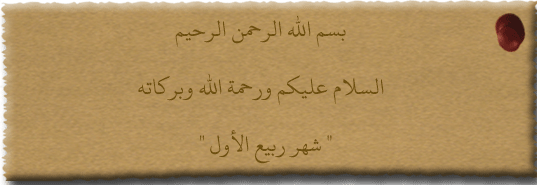 بسم الله الرحمن الرحيم
السلام عليكم ورحمة الله وبركاته
" شهر ربيع الأول "